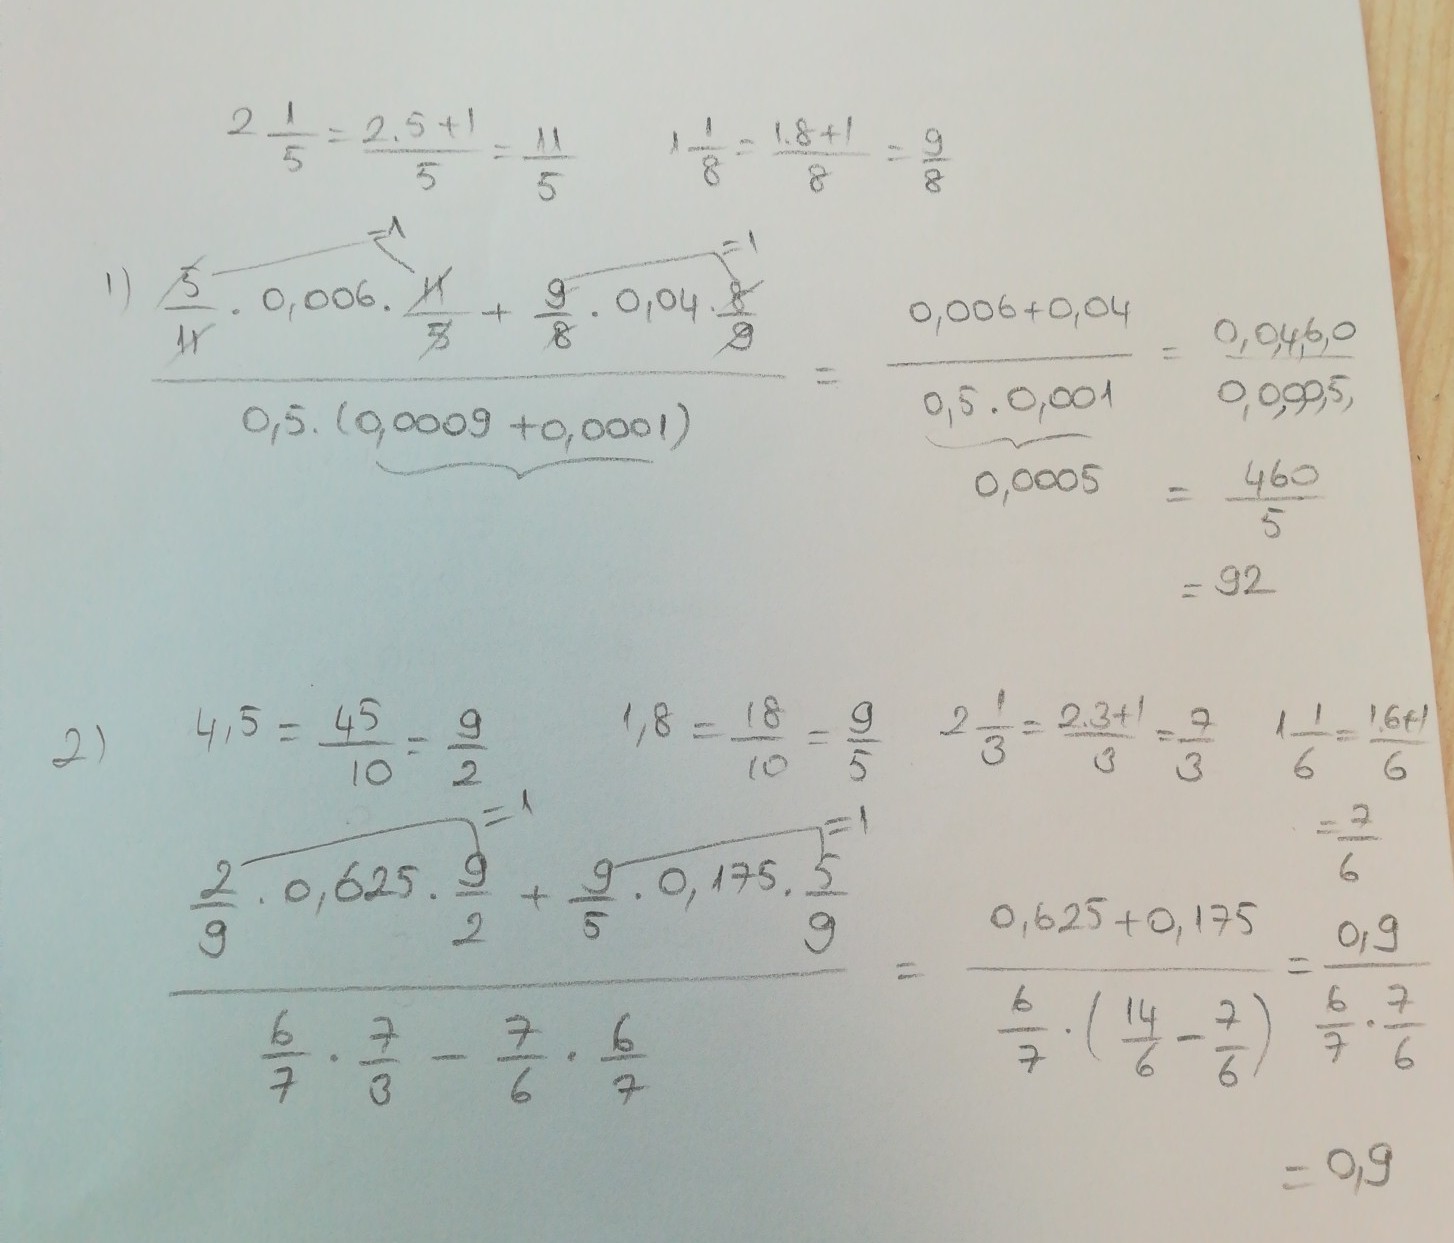 2 1/5 = (2.5+1)/5 = 11/5   1 1/8 = (1.8+1)/8 = 9/8
=1   =1
1) (5/11 . 0,006 . 11/5 + 9/8 . 0,04 . 8/9) / (0,5.(0,0009+0,0001)) = (0,006+0,04) / (0,5.0,001) = 0,0,4,6,0 / 0,0,0,0,5,
0,0005 = 460/5
= 92
2) 4,5 = 45/10 = 9/2   1,8 = 18/10 = 9/5   2 1/3 = (2.3+1)/3 = 7/3   1 1/6 = (1.6+1)/6
= 7/6
=1   =1
(2/9 . 0,625 . 9/2 + 9/5 . 0,175 . 5/9) / (6/7 . 7/3 - 7/6 . 6/7) = (0,625+0,175) / (6/7 . (14/6 - 7/6)) = 0,9 / (6/7 . 7/6)
= 0,9